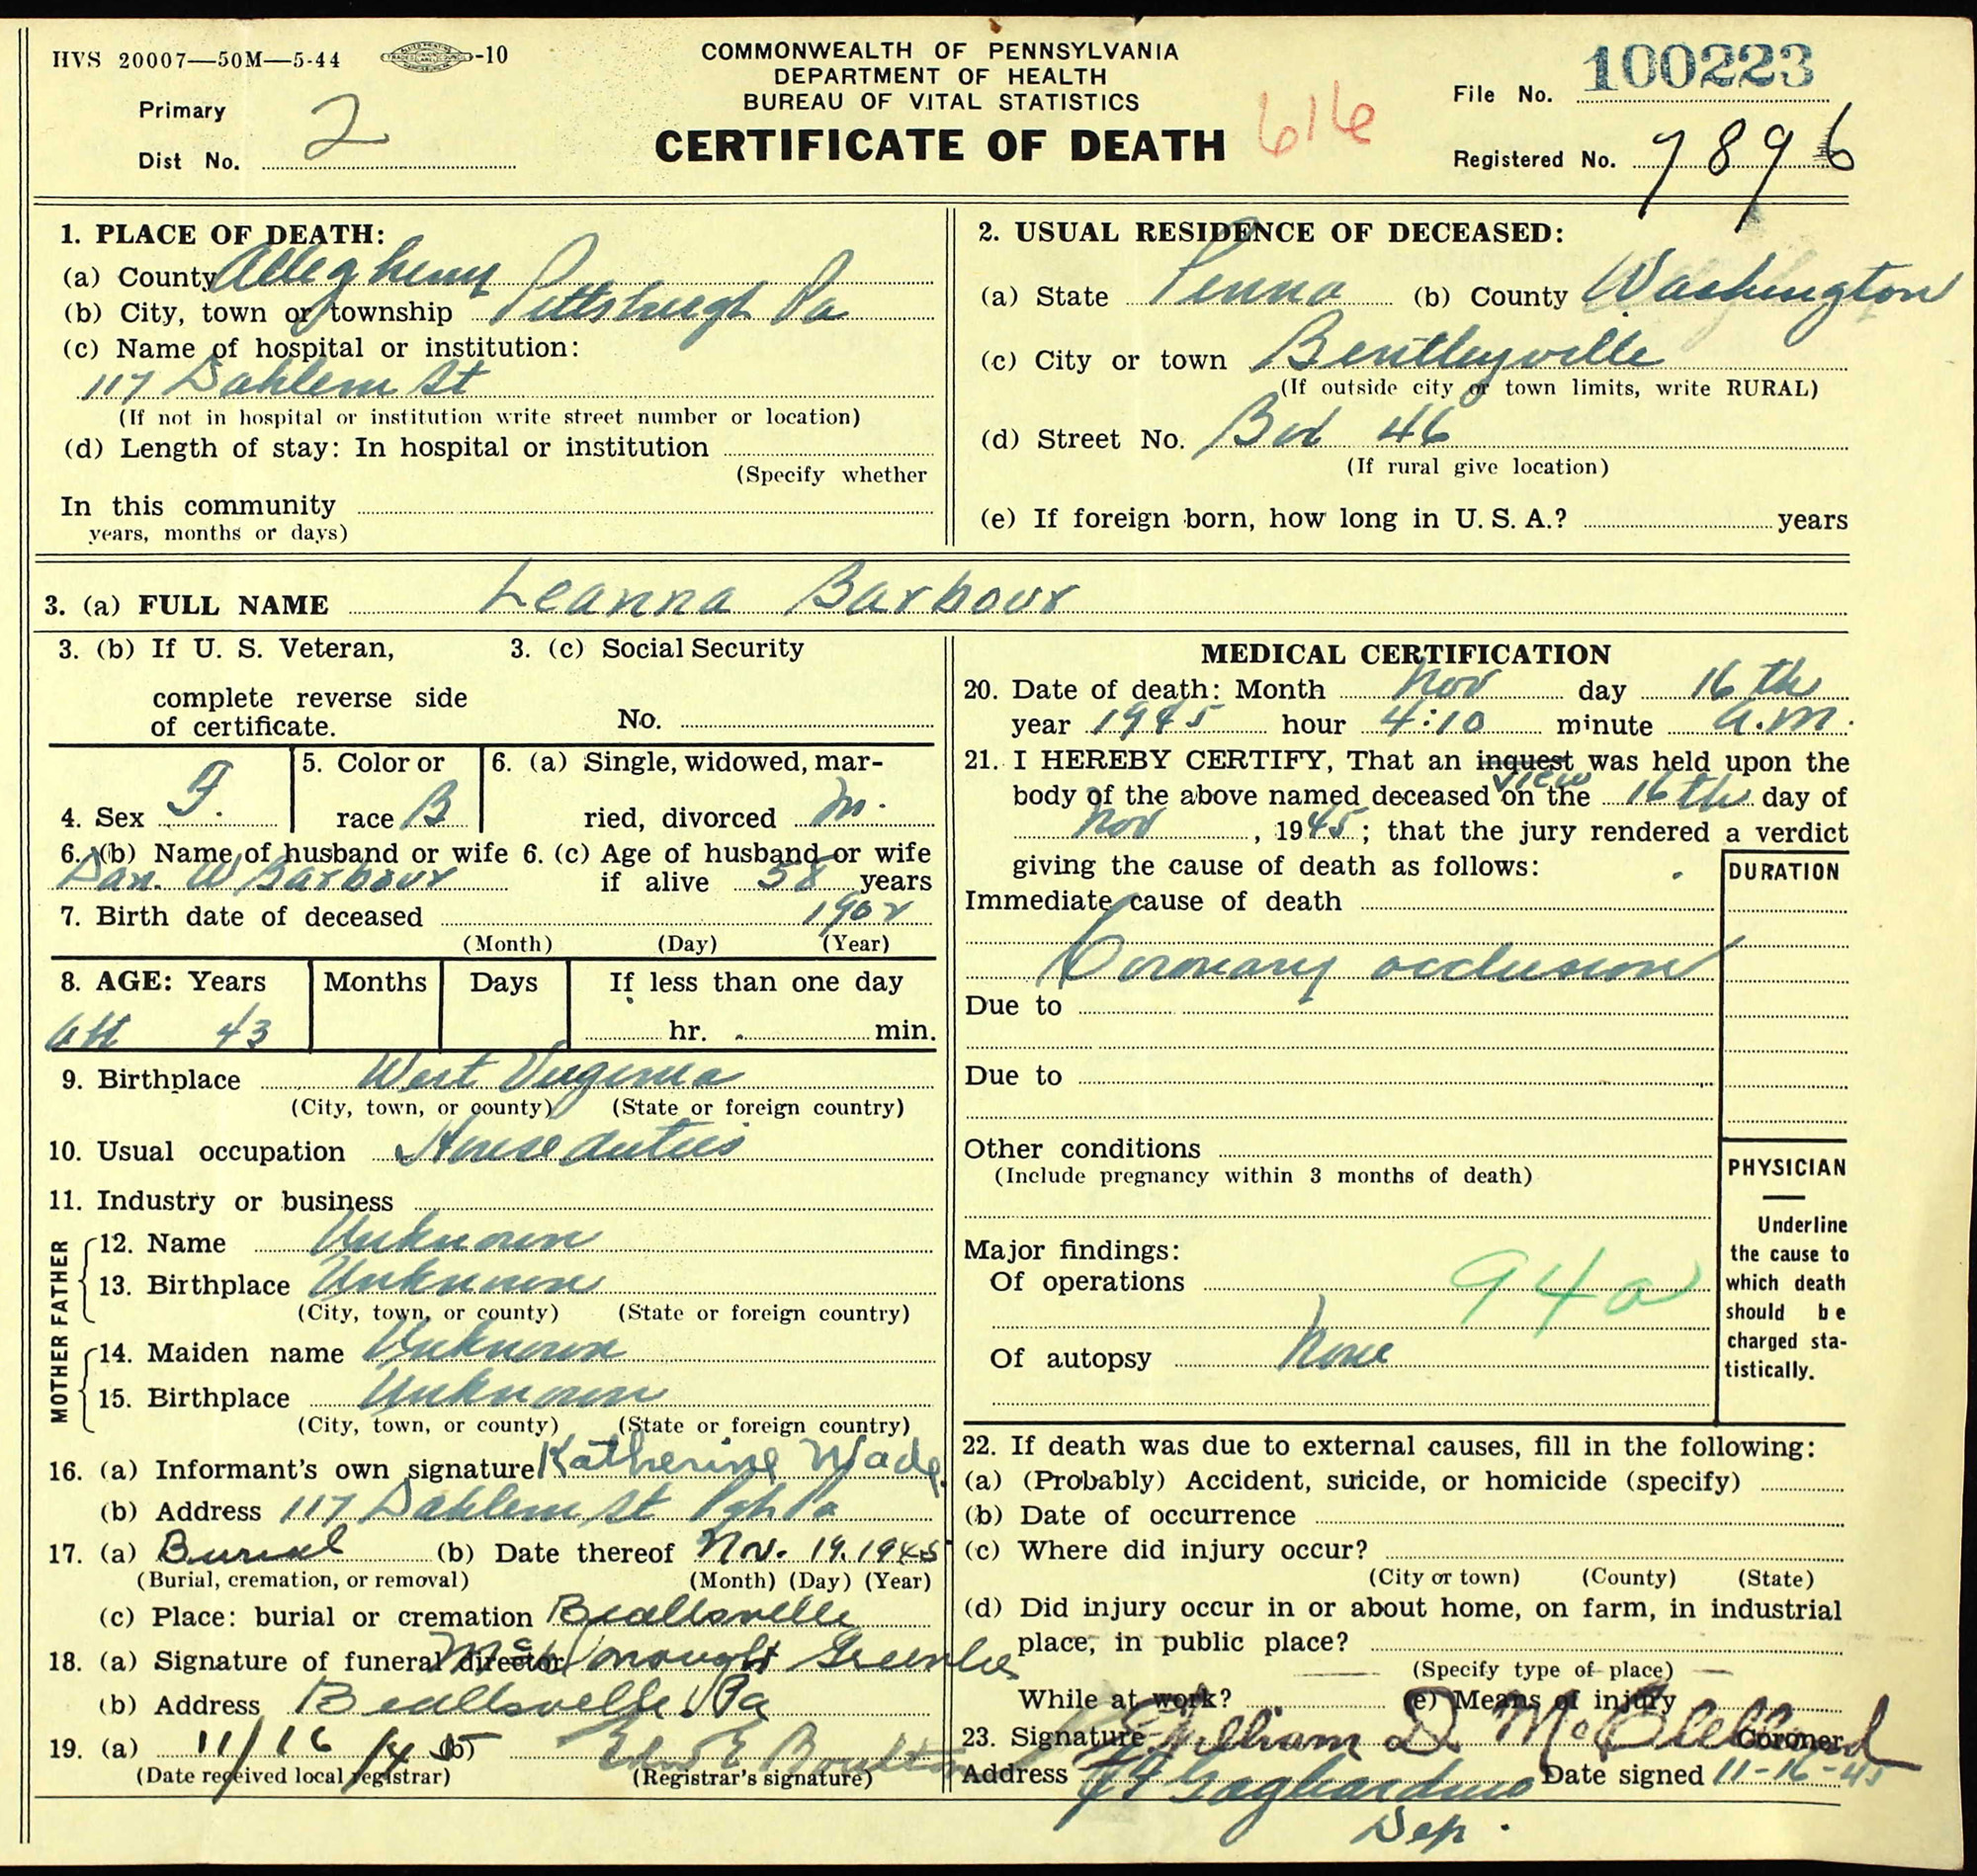 HVS 20007—50M—5-44 -10
COMMONWEALTH OF PENNSYLVANIA
DEPARTMENT OF HEALTH
BUREAU OF VITAL STATISTICS
CERTIFICATE OF DEATH
616
File No. 100223
Registered No. 7896
Primary
Dist No. 2
1. PLACE OF DEATH:
(a) County Allegheny
(b) City, town or township Pittsburgh Pa
(c) Name of hospital or institution:
117 Dahlem St
(If not in hospital or institution write street number or location)
(d) Length of stay: In hospital or institution
(Specify whether
In this community
years, months or days)
2. USUAL RESIDENCE OF DECEASED:
(a) State Penna (b) County Washington
(c) City or town Bentleyville
(If outside city or town limits, write RURAL)
(d) Street No. Box 46
(If rural give location)
(e) If foreign born, how long in U. S. A.? years
3. (a) FULL NAME Leanna Barbour
3. (b) If U. S. Veteran,
complete reverse side
of certificate.
3. (c) Social Security
No.
4. Sex F.
5. Color or
race B
6. (a) Single, widowed, mar-
ried, divorced M.
6. (b) Name of husband or wife
Dan. W Barbour
6. (c) Age of husband or wife
if alive 58 years
7. Birth date of deceased 1902
(Month) (Day) (Year)
8. AGE: Years Months Days If less than one day
43 hr. min.
9. Birthplace West Virginia
(City, town, or county) (State or foreign country)
10. Usual occupation House duties
11. Industry or business
FATHER
12. Name Unknown
13. Birthplace Unknown
(City, town, or county) (State or foreign country)
MOTHER
14. Maiden name Unknown
15. Birthplace Unknown
(City, town, or county) (State or foreign country)
16. (a) Informant's own signature Katherine Wade
(b) Address 117 Dahlem St Pgh Pa
17. (a) Burial (b) Date thereof Nov. 19. 1945
(Burial, cremation, or removal) (Month) (Day) (Year)
(c) Place: burial or cremation Beallsville
18. (a) Signature of funeral director
(b) Address Beallsville Pa
19. (a) 11/16/45 (b)
(Date received local registrar) (Registrar's signature)
MEDICAL CERTIFICATION
20. Date of death: Month Nov day 16th
year 1945 hour 4:10 minute a.m.
21. I HEREBY CERTIFY, That an inquest was held upon the
view
body of the above named deceased on the 16th day of
Nov, 1945; that the jury rendered a verdict
giving the cause of death as follows:
DURATION
Immediate cause of death
Coronary occlusion
Due to
Due to
Other conditions
(Include pregnancy within 3 months of death)
Major findings:
Of operations
94a
Of autopsy None
PHYSICIAN
Underline
the cause to
which death
should be
charged sta-
tistically.
22. If death was due to external causes, fill in the following:
(a) (Probably) Accident, suicide, or homicide (specify)
(b) Date of occurrence
(c) Where did injury occur?
(City or town) (County) (State)
(d) Did injury occur in or about home, on farm, in industrial
place, in public place?
(Specify type of place)
While at work? (e) Means of injury
23. Signature William D. McClelland Coroner
Address Date signed 11-16-45
Dep.